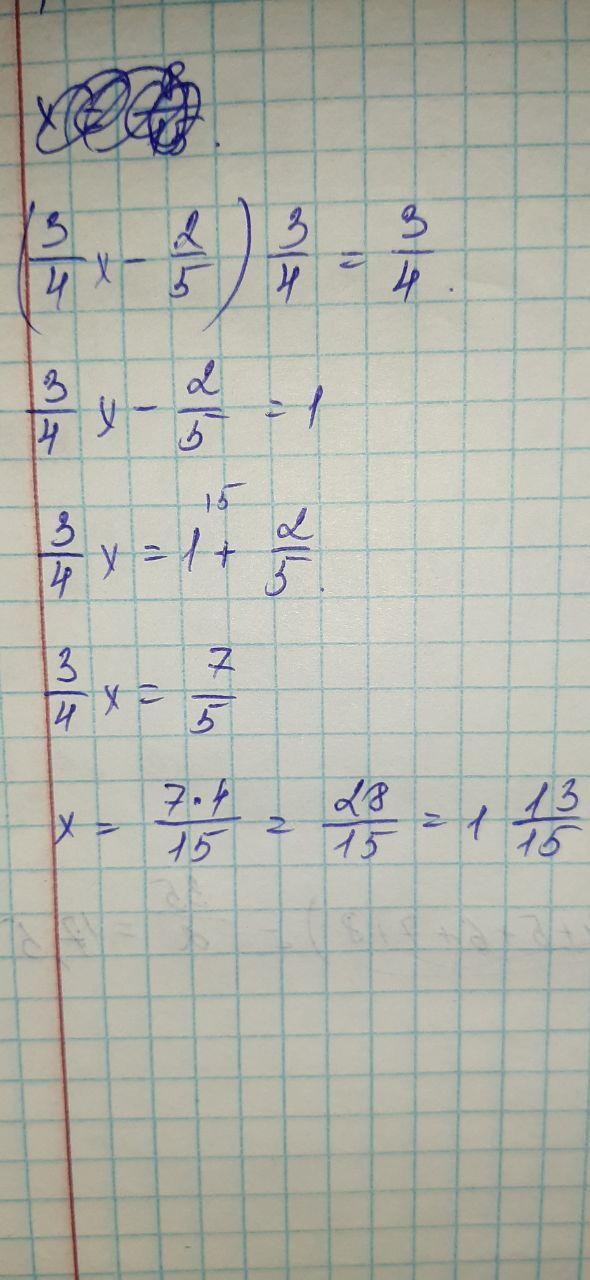 (3/4 x - 2/5) 3/4 = 3/4.
3/4 x - 2/5 = 1
15
3/4 x = 1 + 2/5.
3/4 x = 7/5
x = 7·4/15 = 28/15 = 1 13/15